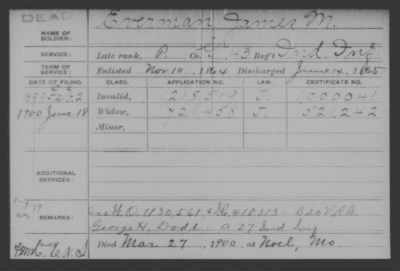 DEAD
NAME OF SOLDIER: Everman, James M.
SERVICE: Late rank, P. Co. 43 Reg't Ind. Inf.
TERM OF SERVICE: Enlisted Nov. 10, 1864 Discharged June 14, 1865
DATE OF FILING. CLASS. APPLICATION NO. LAW. CERTIFICATE NO.
Invalid, J.
1900 June 18 Widow, 721458 J. 521242
Minor,
ADDITIONAL SERVICES:
REMARKS: W.O. 1180,561 & W.C. 418313
George H. Dodd 27 Ind Inf
Died Mar. 27, 1900, at Noel, Mo.